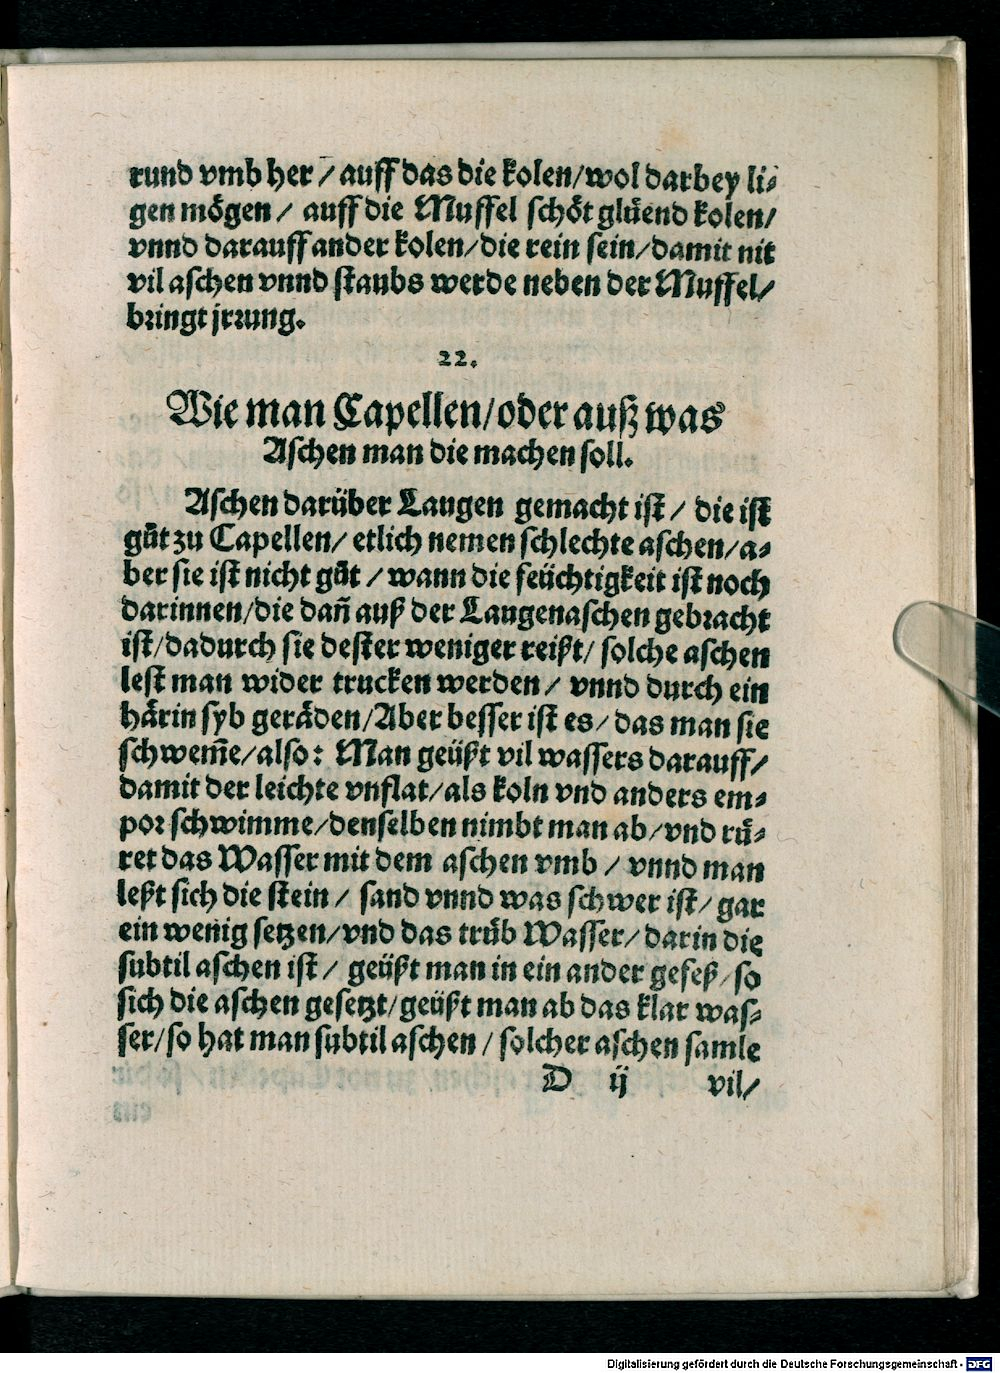 rund vmb her / auff das die kolen/wol darbey li⸗
gen mögen / auff die Muffel schöt glüend kolen/
vnnd darauff ander kolen/die rein sein/damit nit
vil aschen vnnd staubs werde neben der Muffel/
bringt jrrung.
22.
Wie man Capellen/oder auß was
Aschen man die machen soll.
Aschen darüber Laugen gemacht ist / die ist
gůt zu Capellen/ etlich nemen schlechte aschen/a⸗
ber sie ist nicht gůt / wann die feüchtigkeit ist noch
darinnen/die dañ auß der Laugenaschen gebracht
ist/dadurch sie dester weniger reißt/ solche aschen
lest man wider trucken werden / vnnd durch ein
härin syb geräden/Aber besser ist es/ das man sie
schwem̃e/also: Man geüßt vil wassers darauff/
damit der leichte vnflat/als koln vnd anders em⸗
por schwimme/denselben nimbt man ab/vnd rü⸗
ret das Wasser mit dem aschen vmb / vnnd man
leßt sich die stein / sand vnnd was schwer ist/ gar
ein wenig setzen/vnd das trüb Wasser/ darin die
subtil aschen ist / geüßt man in ein ander gefeß/so
sich die aschen gesetzt/geüßt man ab das klar was⸗
ser/so hat man subtil aschen / solcher aschen samle
D ij vil/
Digitalisierung gefördert durch die Deutsche Forschungsgemeinschaft - DFG